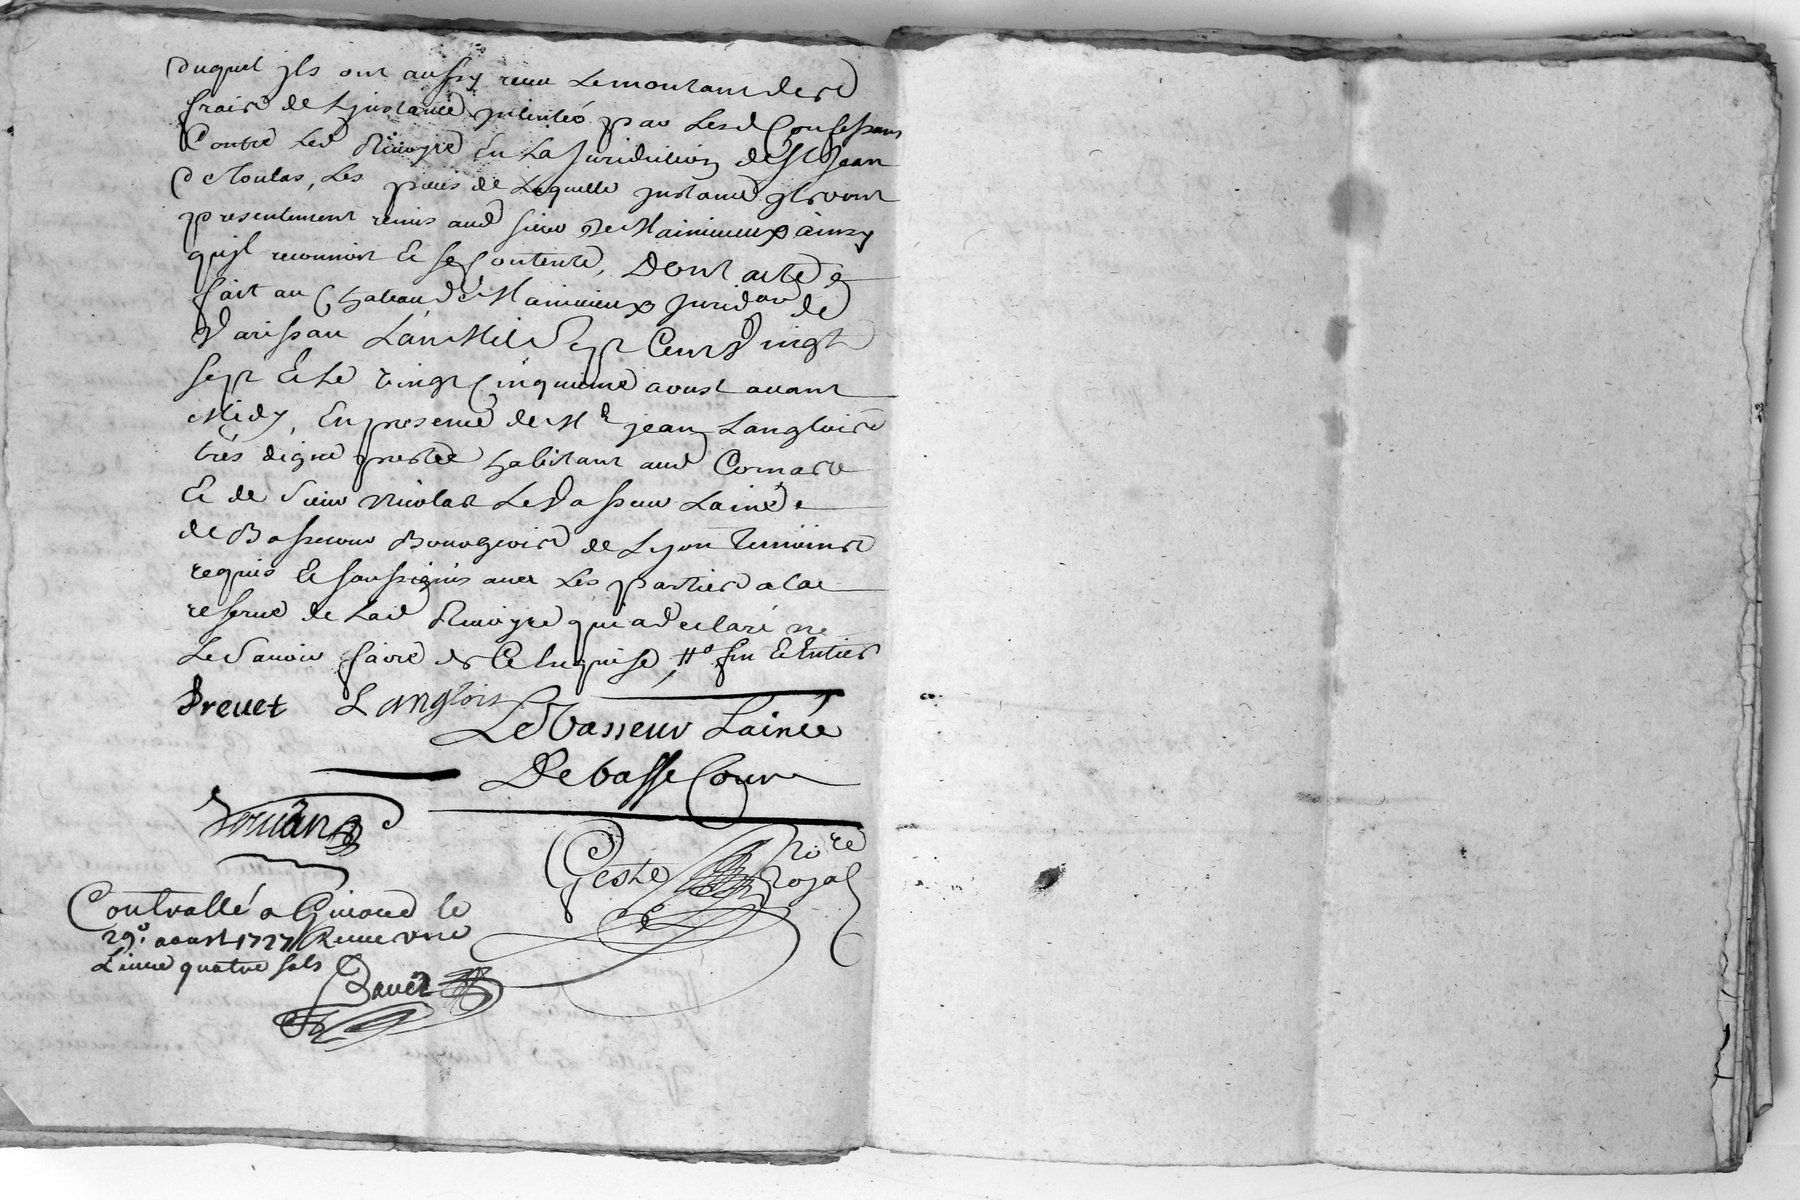 duquel jls ont aussy receu Le montant des
fraix de L jnstance jntentéé par Lesd Confessans
Contre Led Rivoyre En La Juridiction de St Jean
de Toulas, Les pieces de Laquelle jnstance jls ont
presentement remis aud sieur De Mainieux ainsy
qu'jl reconnoit Et se Contente, Dont acte
fait au Chateau de Mainieux Jurid.on de
Varissan L'an Mil Sept Cent Vingt
sept Et Le vingt Cinquieme aoust avant
Midy, En presence de Mr jean Langlois
très digne prestre habitant aud
Et de Sieur Nicolas Le Vasseur Lainé
de Bassecour Bourgeois de Lyon Temoins
requis Et soussignés avec Les parties a la
reserve de Lad Rivoyre qui a declaré ne
Le Savoir faire de Ce Enquise,
Brevet Langlois
Le Vasseur Lainée
De basse Cour
Geste nore
royal
Contrallé a Givord le
29e. aoust 1727 Receu une
Livre quatre sols